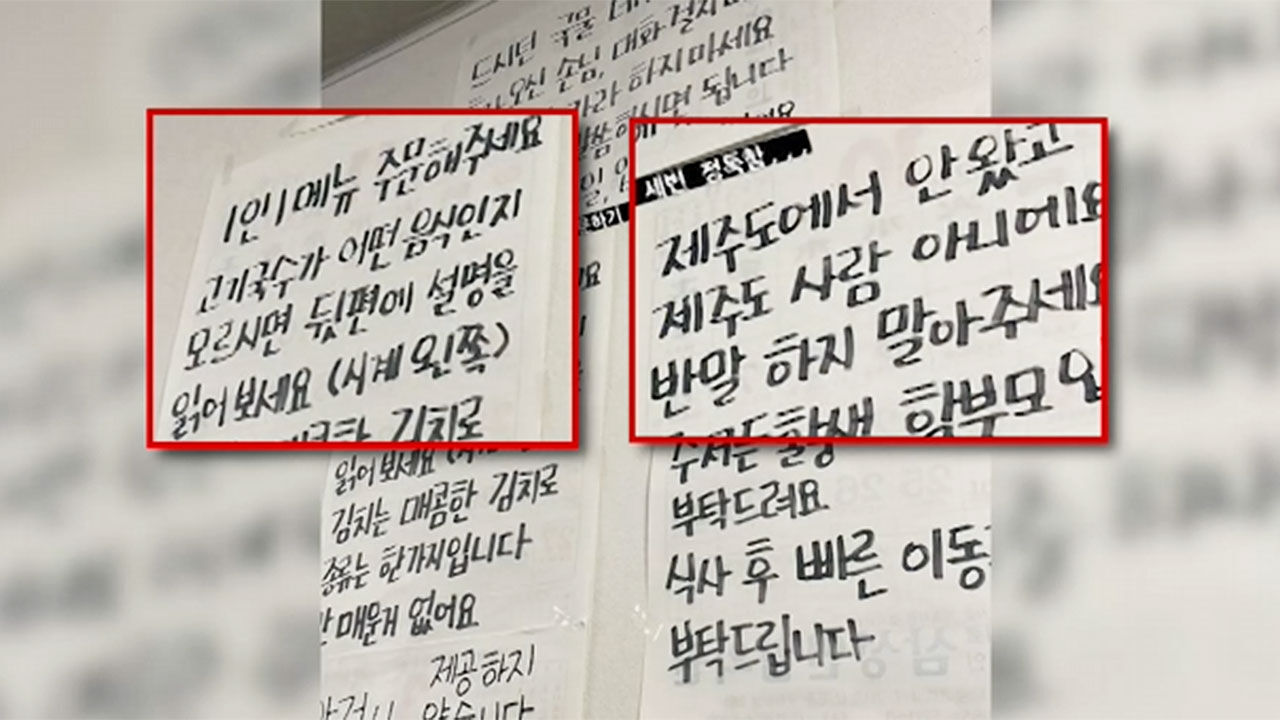 드시면 국물
오신 손님, 대화 걸지
하지 마세요
하시면 됩니다
1인 1메뉴 주문해주세요
고기국수가 어떤 음식인지
모르시면 뒷편에 설명을
읽어 보세요 (시계 왼쪽)
김치로
읽어보세요
김치는 매콤한 김치로
종류는 한가지입니다
매운거 없어요
제공하지
않습니다
세번 정독할
제주도에서 안 왔고
제주도 사람 아니에요
반말 하지 말아주세요
부탁드려요
식사 후 빠른 이동
부탁드립니다